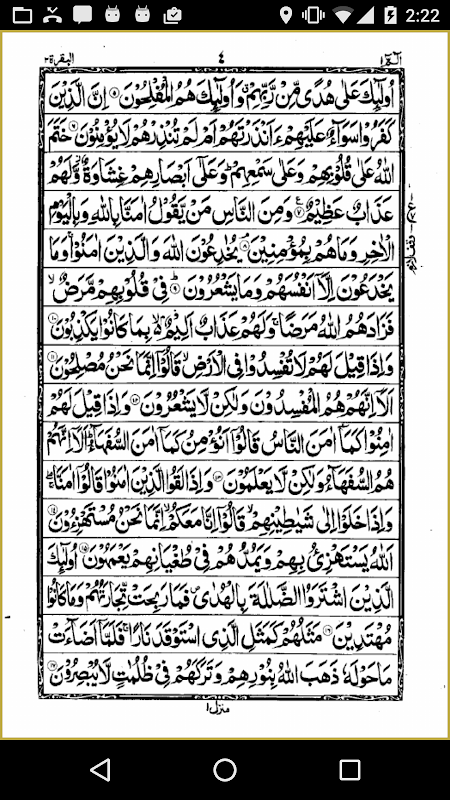 2:22
البقرة ٢ ٤ الٓمّٓ ١
اُولٰٓئِكَ عَلٰى هُدًى مِّنْ رَّبِّهِمْ وَاُولٰٓئِكَ هُمُ الْمُفْلِحُوْنَ ۝۵ اِنَّ الَّذِيْنَ
كَفَرُوْا سَوَآءٌ عَلَيْهِمْ ءَاَنْذَرْتَهُمْ اَمْ لَمْ تُنْذِرْهُمْ لَا يُؤْمِنُوْنَ ۝۶ خَتَمَ
اللّٰهُ عَلٰى قُلُوْبِهِمْ وَعَلٰى سَمْعِهِمْ ؕ وَعَلٰٓى اَبْصَارِهِمْ غِشَاوَةٌ ؗ وَّلَهُمْ
عَذَابٌ عَظِيْمٌ ۝۷ وَمِنَ النَّاسِ مَنْ يَّقُوْلُ اٰمَنَّا بِاللّٰهِ وَبِالْيَوْمِ
الْاٰخِرِ وَمَا هُمْ بِمُؤْمِنِيْنَ ۝۸ يُخٰدِعُوْنَ اللّٰهَ وَالَّذِيْنَ اٰمَنُوْا ۚ وَمَا
يَخْدَعُوْنَ اِلَّآ اَنْفُسَهُمْ وَمَا يَشْعُرُوْنَ ۝۹ فِيْ قُلُوْبِهِمْ مَّرَضٌ ۙ
فَزَادَهُمُ اللّٰهُ مَرَضًا ۚ وَلَهُمْ عَذَابٌ اَلِيْمٌ ۙ بِمَا كَانُوْا يَكْذِبُوْنَ ۝۱۰
وَاِذَا قِيْلَ لَهُمْ لَا تُفْسِدُوْا فِي الْاَرْضِ ۙ قَالُوْٓا اِنَّمَا نَحْنُ مُصْلِحُوْنَ ۝۱۱
اَلَآ اِنَّهُمْ هُمُ الْمُفْسِدُوْنَ وَلٰكِنْ لَّا يَشْعُرُوْنَ ۝۱۲ وَاِذَا قِيْلَ لَهُمْ
اٰمِنُوْا كَمَآ اٰمَنَ النَّاسُ قَالُوْٓا اَنُؤْمِنُ كَمَآ اٰمَنَ السُّفَهَآءُ ؕ اَلَآ اِنَّهُمْ
هُمُ السُّفَهَآءُ وَلٰكِنْ لَّا يَعْلَمُوْنَ ۝۱۳ وَاِذَا لَقُوا الَّذِيْنَ اٰمَنُوْا قَالُوْٓا اٰمَنَّا ۚۖ
وَاِذَا خَلَوْا اِلٰى شَيٰطِيْنِهِمْ ۙ قَالُوْٓا اِنَّا مَعَكُمْ ۙ اِنَّمَا نَحْنُ مُسْتَهْزِءُوْنَ ۝۱۴
اَللّٰهُ يَسْتَهْزِئُ بِهِمْ وَيَمُدُّهُمْ فِيْ طُغْيَانِهِمْ يَعْمَهُوْنَ ۝۱۵ اُولٰٓئِكَ
الَّذِيْنَ اشْتَرَوُا الضَّلٰلَةَ بِالْهُدٰى ۪ فَمَا رَبِحَتْ تِّجَارَتُهُمْ وَمَا كَانُوْا
مُهْتَدِيْنَ ۝۱۶ مَثَلُهُمْ كَمَثَلِ الَّذِي اسْتَوْقَدَ نَارًا ۚ فَلَمَّآ اَضَآءَتْ
مَا حَوْلَهٗ ذَهَبَ اللّٰهُ بِنُوْرِهِمْ وَتَرَكَهُمْ فِيْ ظُلُمٰتٍ لَّا يُبْصِرُوْنَ ۝۱۷
منزل ١